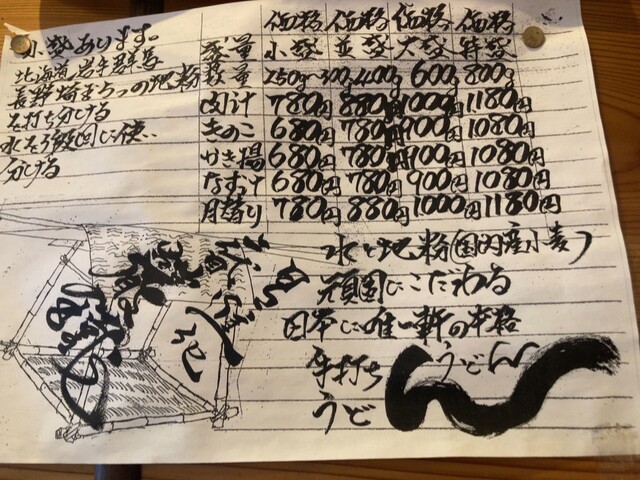 価格 価格 価格 価格
小盛あります。 盛量 小盛 並盛 大盛 特盛
北海道岩手群馬 数量 250g~300g 400g 600g 800g
長野埼玉5つの地粉 肉汁 780円 880円 1000円 1180円
を打ち分ける きのこ 680円 780円 900円 1080円
水を3段回に使い かき揚 680円 780円 900円 1080円
分ける なすつけ 680円 780円 900円 1080円
月替り 780円 880円 1000円 1180円
水と地粉(国内産小麦)
頑固にこだわる
日本に唯一軒の本格
手打ち うどん
うどん